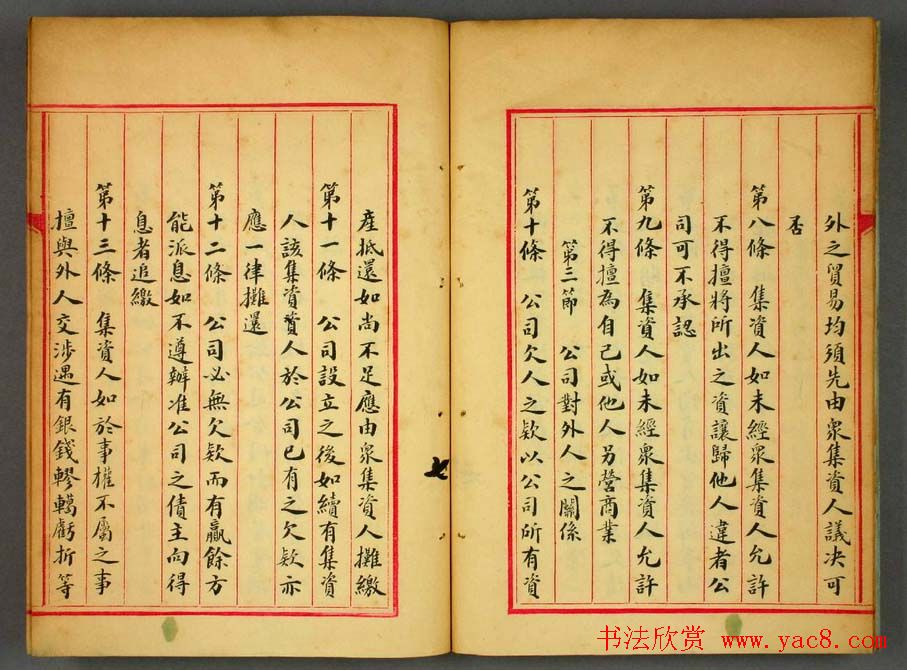 外之貿易均須先由衆集資人議决可
否
第八條　集資人如未經衆集資人允許
不得擅將所出之資讓歸他人違者公
司可不承認
第九條　集資人如未經衆集資人允許
不得擅為自己或他人另營商業
第三節　公司對外人之關係
第十條　公司欠人之欵以公司所有資
産抵還如尚不足應由衆集資人攤繳
第十一條　公司設立之後如續有集資
人該集資貲人於公司已有之欠欵亦
應一律攤還
第十二條　公司必無欠欵而有贏餘方
能派息如不遵辦准公司之債主向得
息者追繳
第十三條　集資人如於事權不屬之事
擅與外人交涉遇有銀錢轇轕虧折等
七
书法欣赏 www.yac8.com